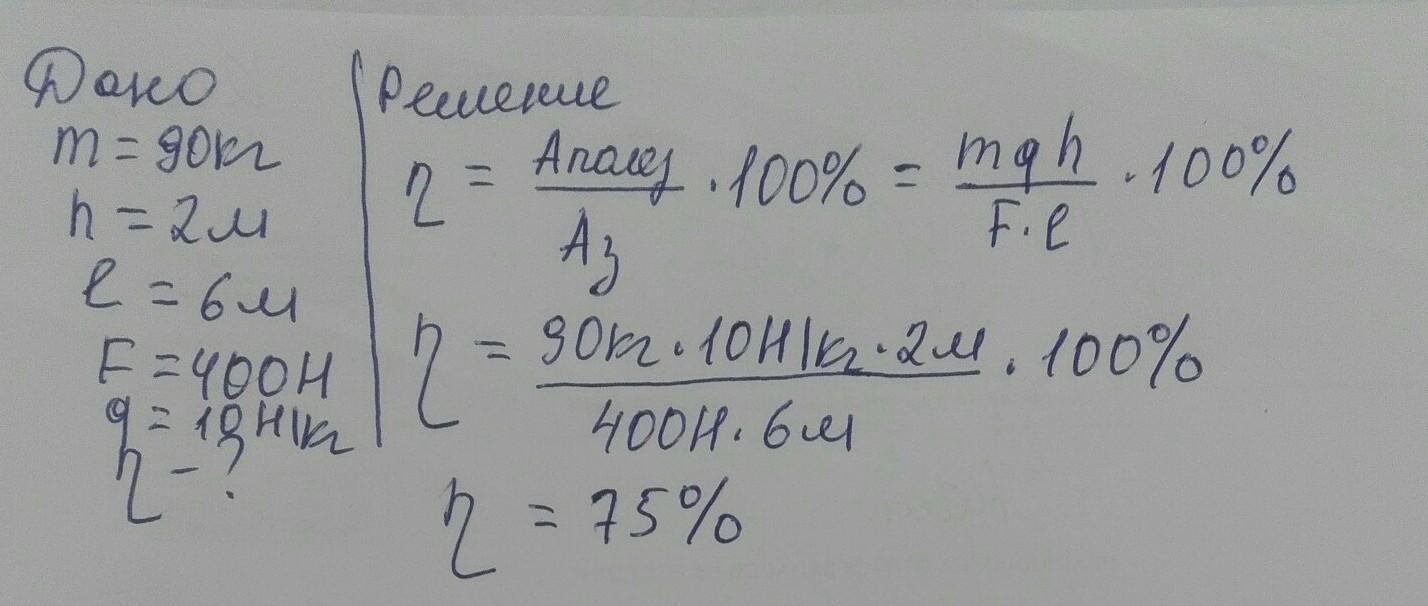 Дано
m = 90кг
h = 2м
l = 6м
F = 400Н
g = 10Н/кг
η - ?
Решение
η = Aполез / Aз · 100% = mgh / F·l · 100%
η = 90кг·10Н/кг·2м / 400Н·6м · 100%
η = 75%